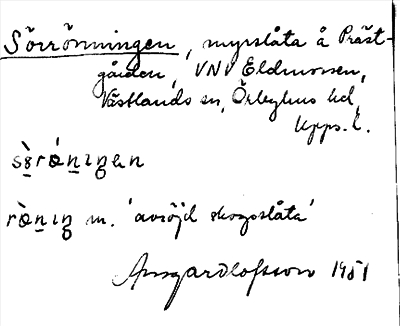 Sörrönningen, myrslåta å Präst-
gården, VNV Eldmossen,
Västlands sn, Örbyhus hd,
Upps. l.
sö̀rǿniŋən
rø̀niŋ m. 'avröjd skogsslåta'
Ansgard Lofsson 1951